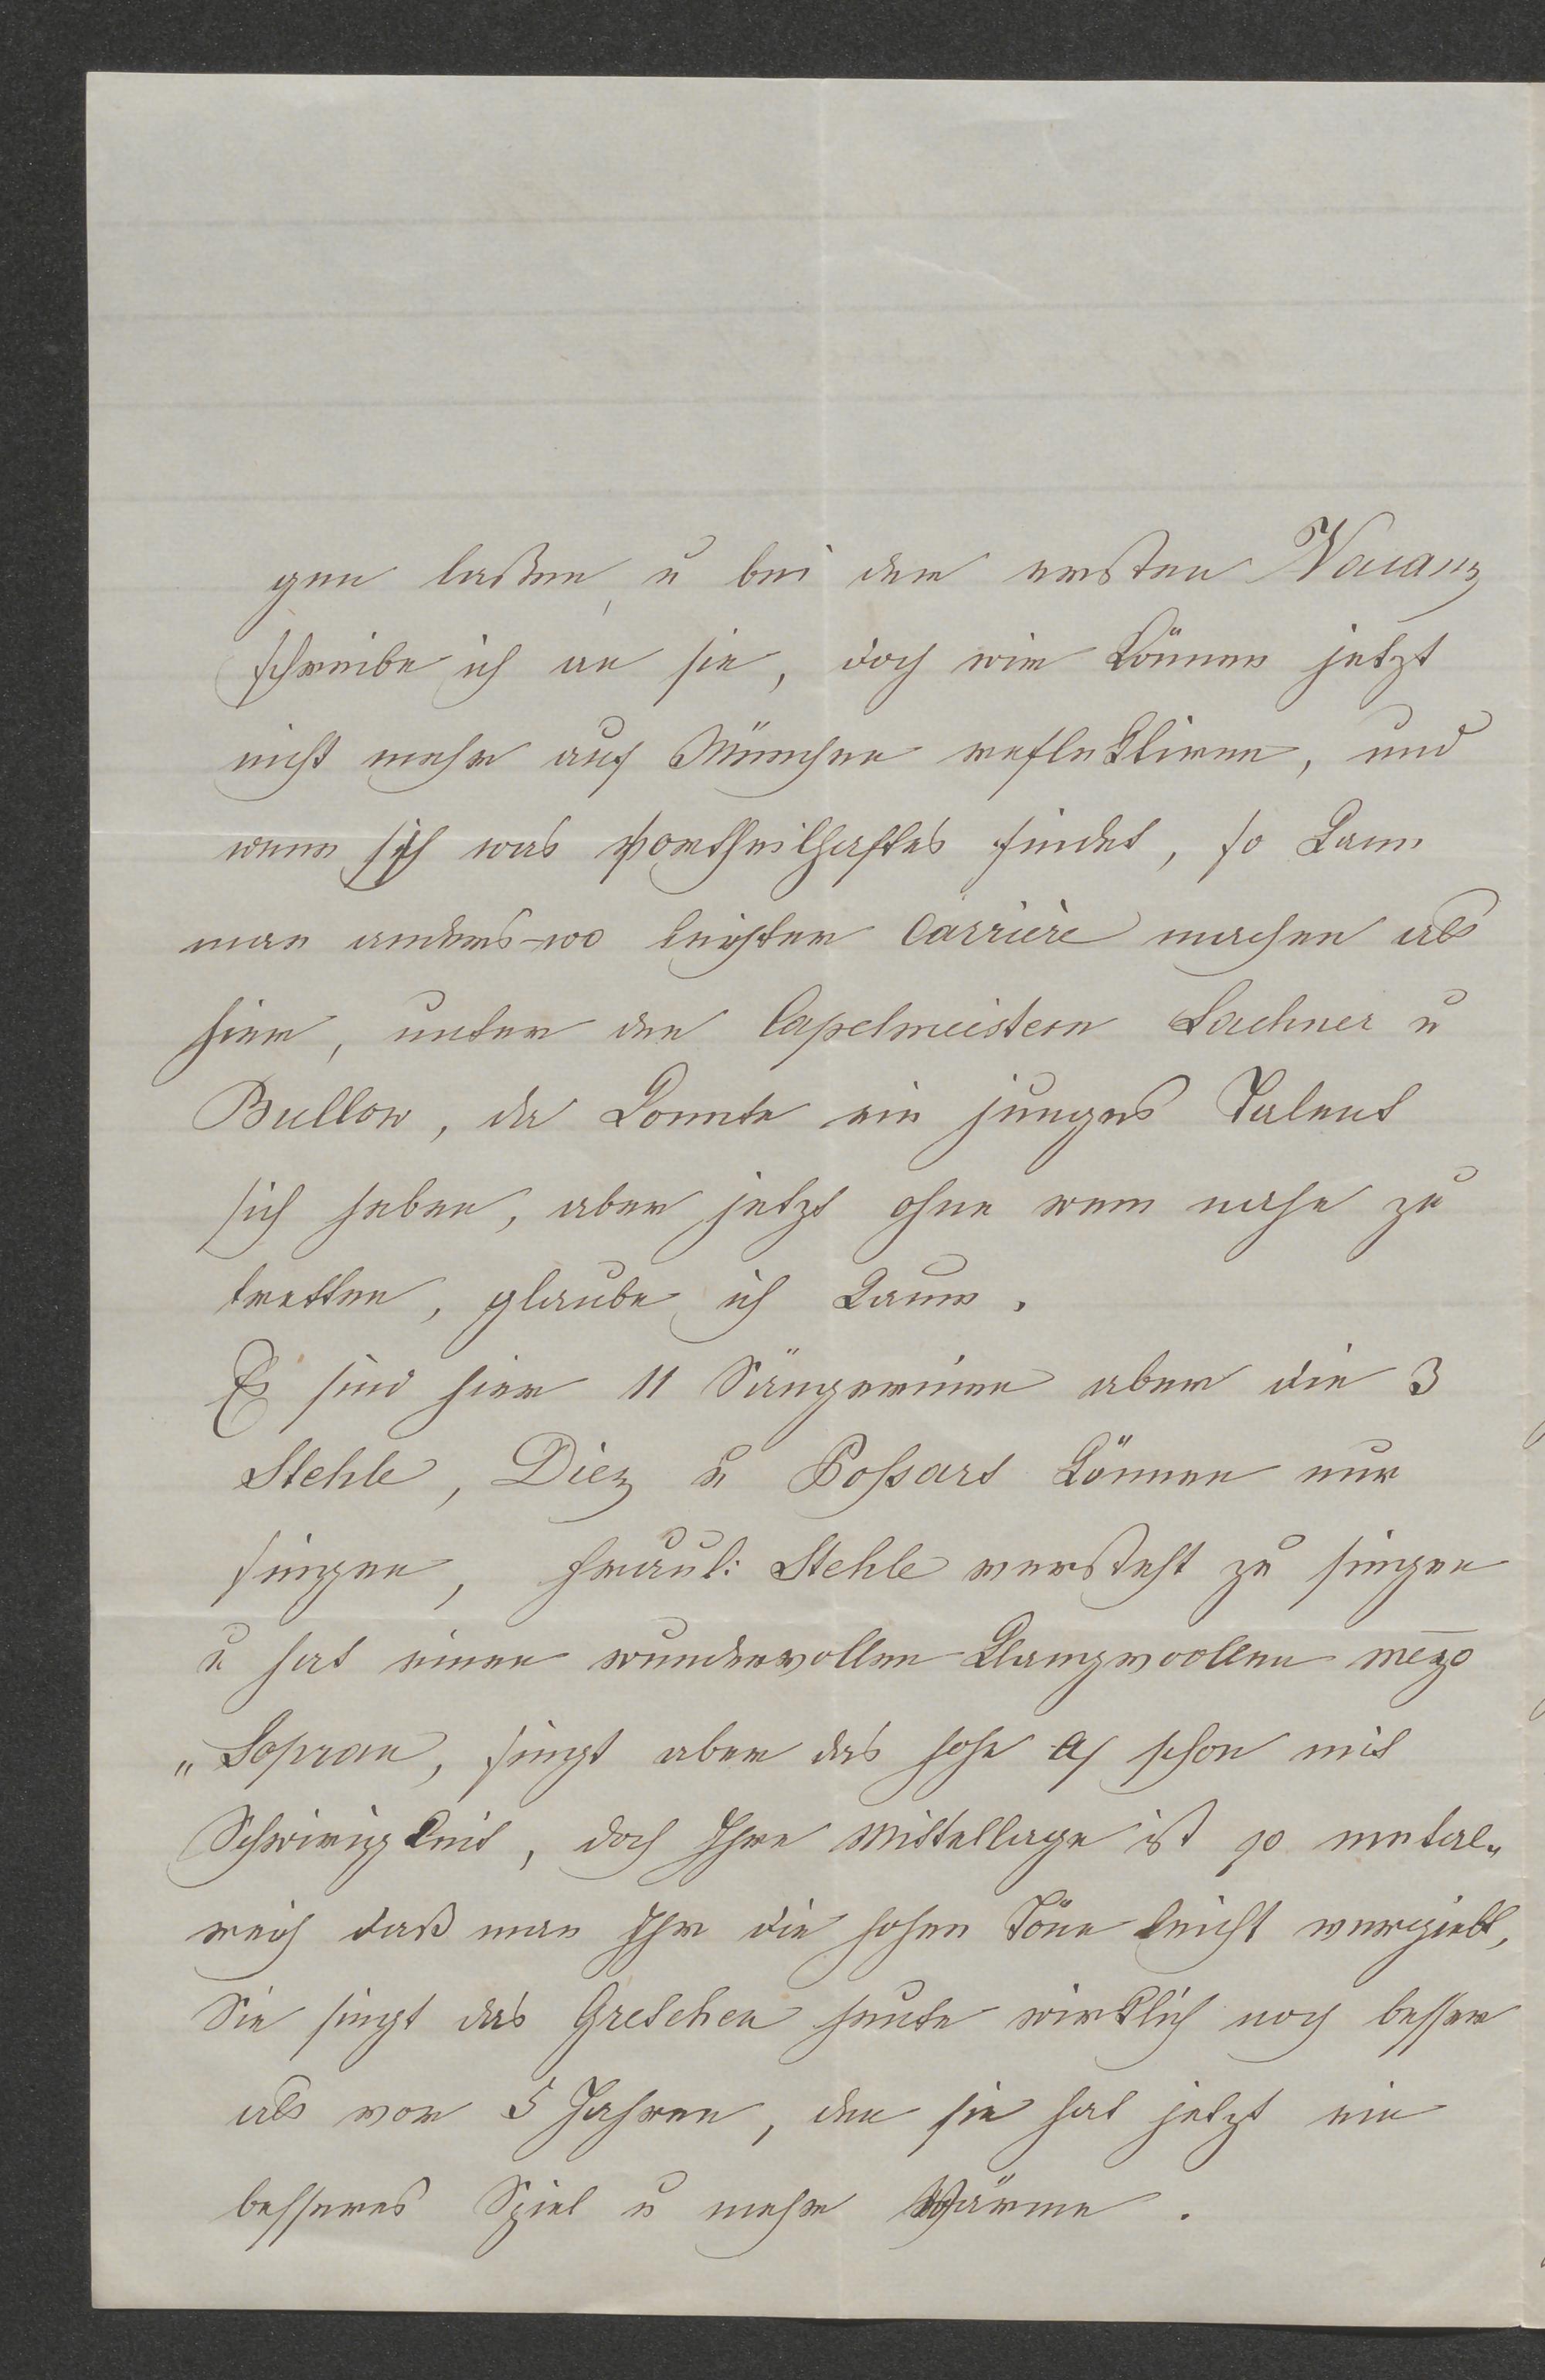 gen laßen, u bei der ersten Vacanz
schreibe ich an sie, doch wir können jetzt
nicht mehr auf München reflektiren, und
wenn sich was vortheilhaftes findet, so kann
man anders-wo leichter Carrière machen als
hier, unter den Capelmeistern Lachner u
Bullow, da konnte ein junges Talent
sich heben, aber jetzt ohne wem nahe zu
tretten, glaube ich kaum.
Es sind hier 11 Sängerinen aber die 3
Stehle, Diez u Poßart können nur
singen, Fraul: Stehle versteht zu singen
u hat einen wundervollen klangvoollen mez̅o
„Sopran, singt aber das hohe A schon mit
Schwirigkeit, doch Ihre Mittellage ist so metal„
reich daß man Ihr die hohen Töne leicht vergiebt,
Sie singt das Gretchen heute wirklich noch besser
als vor 5 Jahren, den sie hat jetzt ein
besseres Spiel u mehr Wärme.